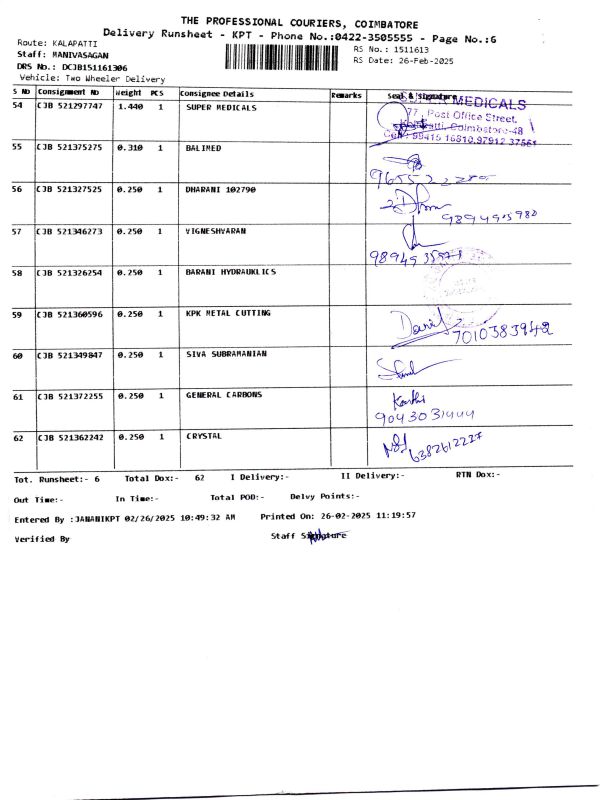 THE PROFESSIONAL COURIERS, COIMBATORE
Delivery Runsheet - KPT - Phone No.:0422-3505555 - Page No.:6
Route: KALAPATTI
RS No.: 1511613
Staff: MANIVASAGAN
RS Date: 26-Feb-2025
DRS No.: DCJB151161306
Vehicle: Two Wheeler Delivery
S No Consignment No Weight PCS Consignee Details Remarks Seal & Signature
54 CJB 521297747 1.440 1 SUPER MEDICALS
MEDICALS
77, Post Office Street,
Coimbatore-48
55 CJB 521375275 0.310 1 BALIMED
56 CJB 521327525 0.250 1 DHARANI 102790
57 CJB 521346273 0.250 1 VIGNESHVARAN
58 CJB 521326254 0.250 1 BARANI HYDRAUKLICS
59 CJB 521360596 0.250 1 KPK METAL CUTTING
7010383942
60 CJB 521349847 0.250 1 SIVA SUBRAMANIAN
61 CJB 521372255 0.250 1 GENERAL CARBONS
Karthi
9043031444
62 CJB 521362242 0.250 1 CRYSTAL
6382612227
Tot. Runsheet:- 6 Total Dox:- 62 I Delivery:- II Delivery:- RTN Dox:-
Out Time:- In Time:- Total POD:- Delvy Points:-
Entered By :JANANIKPT 02/26/2025 10:49:32 AM Printed On: 26-02-2025 11:19:57
Verified By Staff Signature